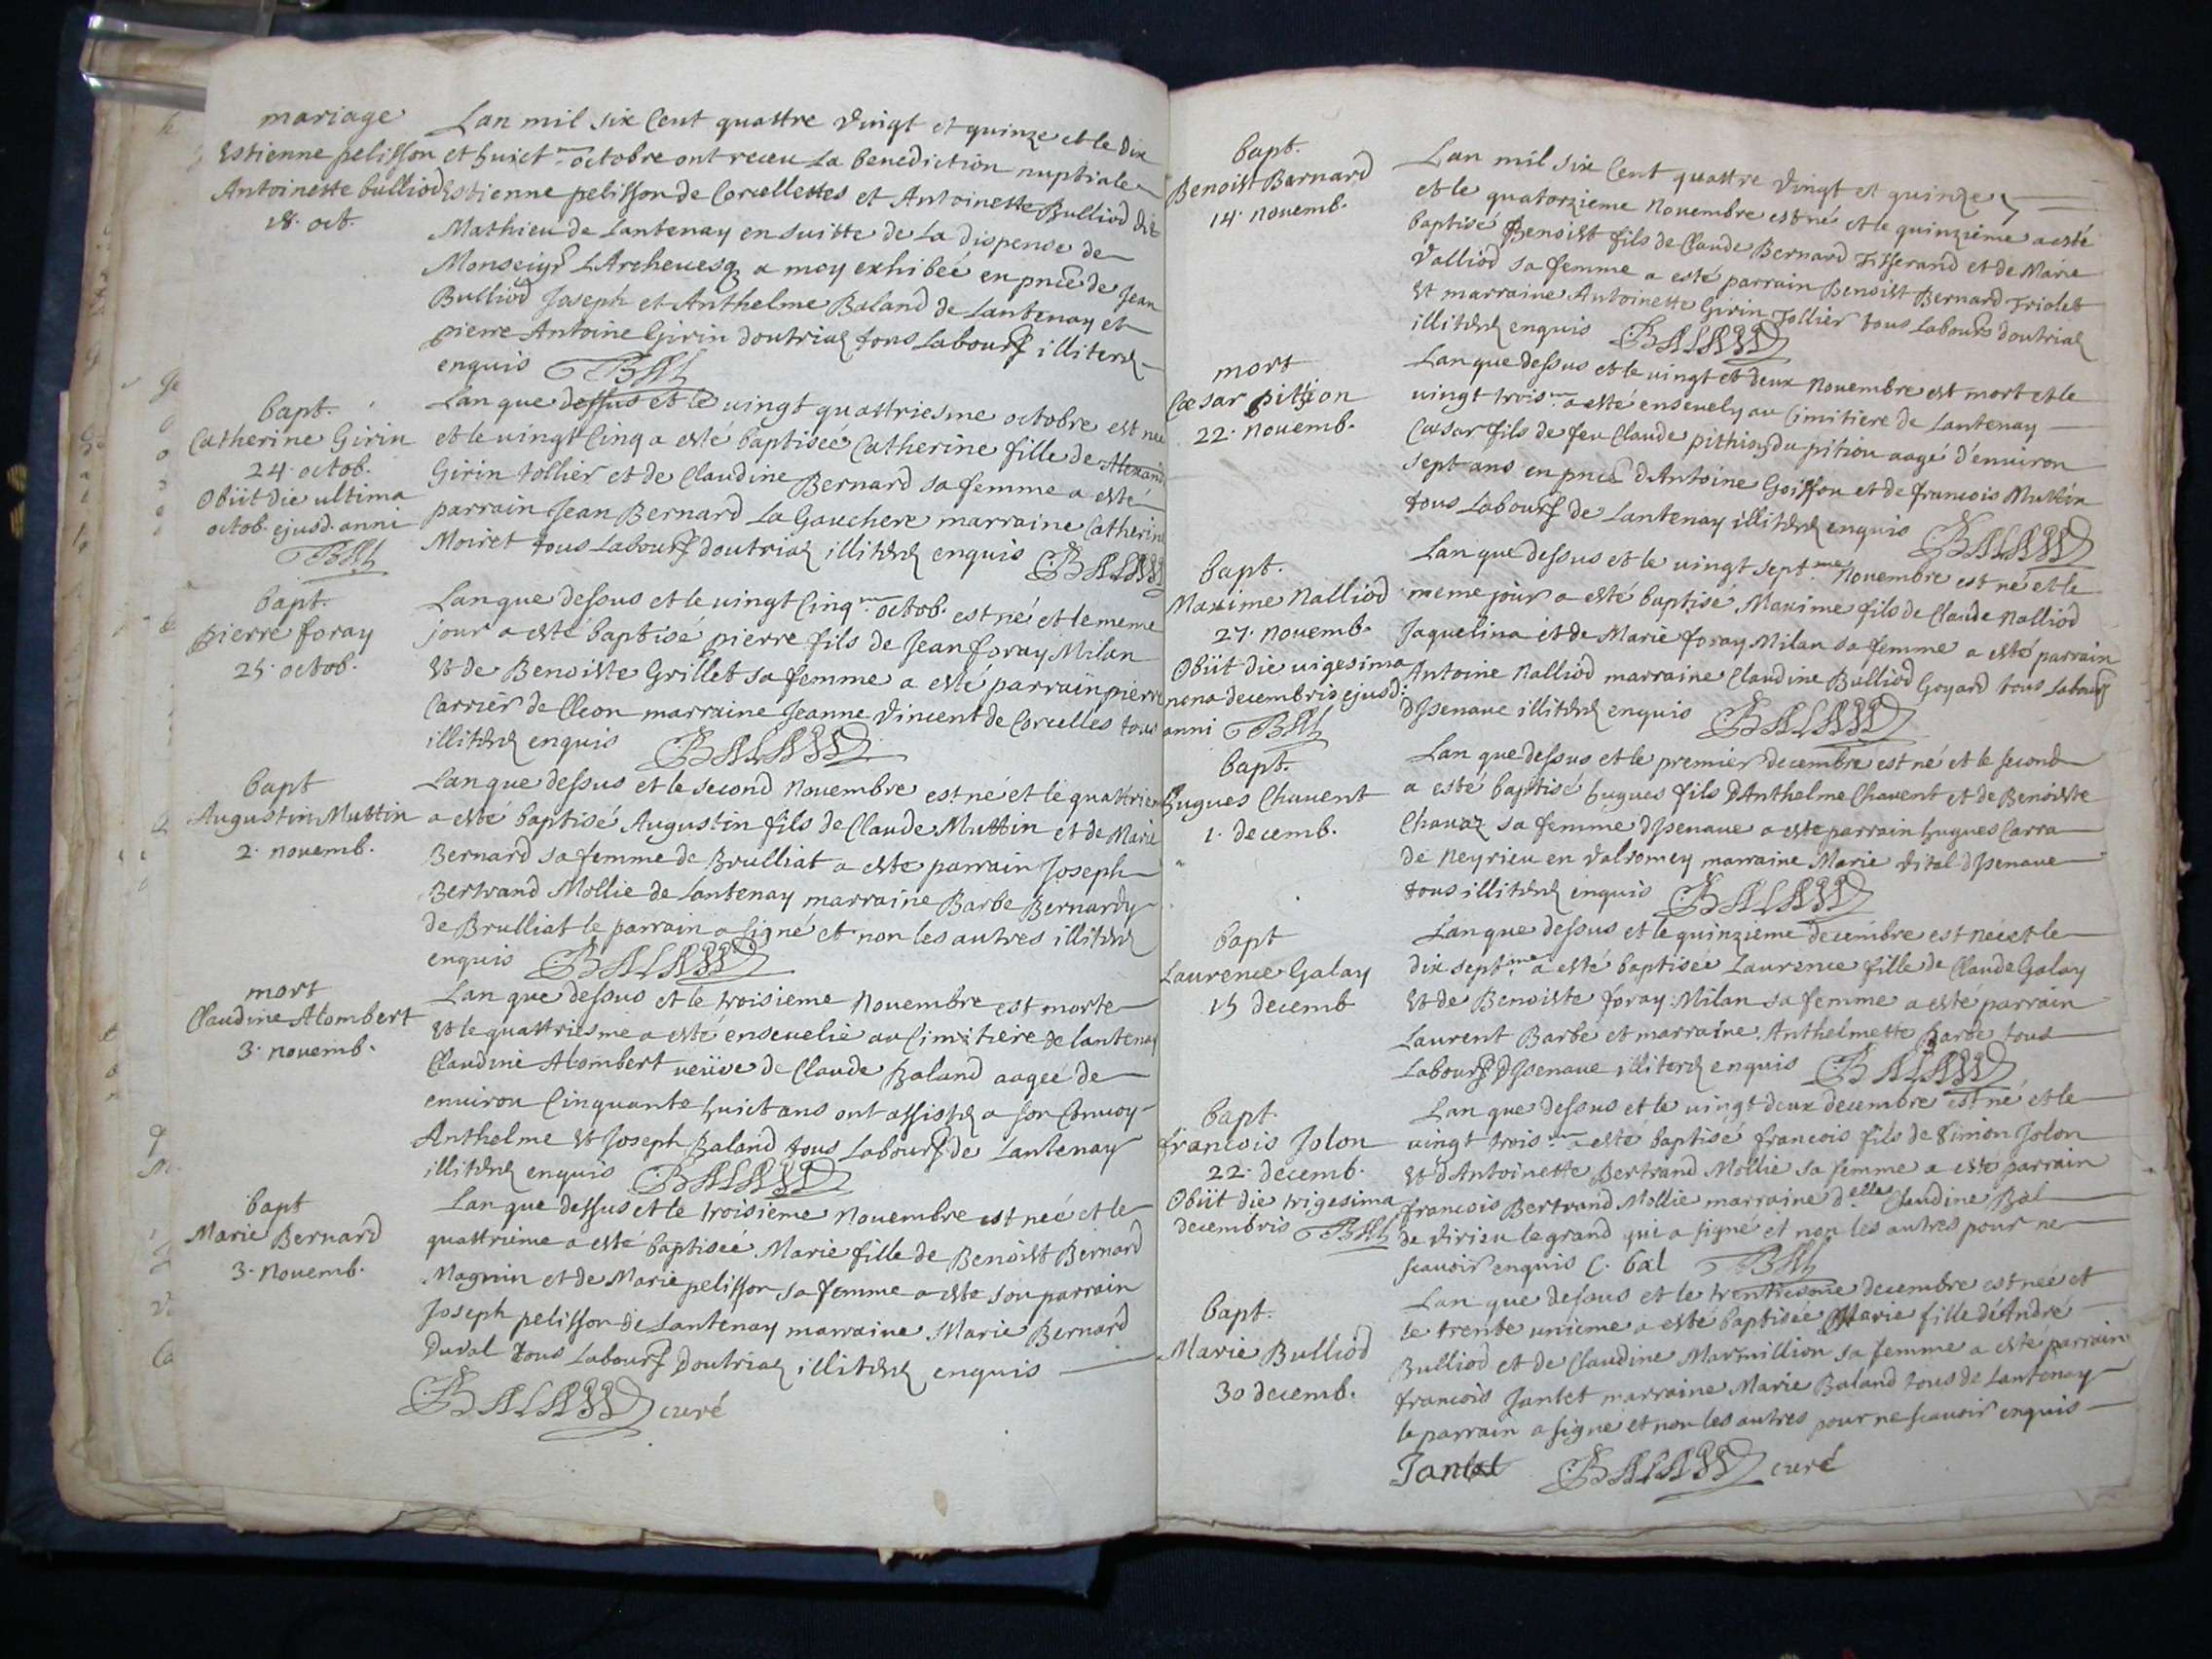 mariage
Estienne pelisson
Antoinette bulliod
18. oct.
Lan mil six Cent quattre vingt et quinze et le dix
et huict.me octobre ont receu La benediction nuptiale
Estienne pelisson de Corcellettes et Antoinette Bulliod dit
Mathieu de Lantenay en suitte de La dispense de
Monseigr LArchevesq a moy exhibeé en pnce de Jean
Bulliod Joseph et Anthelme Baland de Lantenay et
pierre Antoine Girin doutriaz tous Labours illiterez
enquis BAL
bapt.
Catherine Girin
24. octob.
Obiit die ultima
octob. ejusd. anni
BAL
Lan que dessus et le vingt quattriesme octobre est neé
et le vingt Cinq a esté baptiseé Catherine fille de
Girin tollier et de Claudine Bernard sa femme a esté
parrain Jean Bernard La Gauchere marraine Catherine
Moiret tous Labours doutriaz illiterez enquis BALAND
bapt.
pierre foray
25. octob.
Lan que dessus et le vingt Cinq.me octob. est né et le meme
jour a esté baptisé pierre fils de Jean foray Milan
Et de Benoiste Grillet sa femme a esté parrain pierre
Carrier de Cleon marraine Jeanne Vincent de Corcelles tous
illiterez enquis BALAND
bapt
Augustin Muttin
2. novemb.
Lan que dessus et le second Novembre est né et le quattriem
a esté baptisé Augustin fils de Claude Muttin et de Marie
Bernard sa femme de Brulliat a esté parrain Joseph
Bertrand Mollie de Lantenay marraine Barbe Bernardy
de Brulliat le parrain a signé et non les autres illiterez
enquis BALAND
mort
Claudine Alombert
3. novemb.
Lan que dessus et le troisieme Novembre est morte
Et le quattriesme a esté ensevelie au Cimitiere de lantenay
Claudine Alombert veüve de Claude Baland aagee de
environ Cinquante huict ans ont assistez a son Convoy
Anthelme Et Joseph Baland tous Labours de Lantenay
illiterez enquis BALAND
bapt
Marie Bernard
3. Novemb.
Lan que dessus et le troisieme Novembre est neé et le
quattrieme a esté baptiseé Marie fille de Benoist Bernard
Magnin et de Marie pelisson sa femme a esté son parrain
Joseph pelisson de Lantenay marraine Marie Bernard
Duval tous Labours doutriaz illiterez enquis
BALAND curé
bapt.
Benoist Bernard
14. novemb.
Lan mil six Cent quattre vingt et quinze
et le quatorzieme Novembre est né et le quinzieme a esté
baptisé Benoist fils de Claude Bernard Tisserand et de Marie
Valliod sa femme a esté parrain Benoist Bernard Triolet
Et marraine Antoinette Girin Tollier tous Labours doutriaz
illiterez enquis BALAND
mort
Cæsar pittion
22. novemb.
Lan que dessus et le vingt et deux Novembre est mort et le
vingt trois.me a esté ensevely au Cimitiere de Lantenay
Cæsar fils de feu Claude pithion du pition aagé d'environ
sept ans en pnce dAntoine Goisson et de francois Muttin
tous Labours de Lantenay illiterez enquis BALAND
bapt.
Maxime Nalliod
27. novemb.
Obiit die vigesima
nona decembris ejusd.
anni BAL
Lan que dessus et le vingt sept.me Novembre est né et le
meme jour a esté baptisé Maxime fils de Claude Nalliod
Jaquelina et de Marie foray Milan sa femme a esté parrain
Antoine Nalliod marraine Claudine Bulliod Goyard tous Labours
dIsenave illiterez enquis BALAND
bapt.
hugues Chavent
1. decemb.
Lan que dessus et le premier decembre est né et le second
a esté baptisé hugues fils dAnthelme Chavent et de Benoiste
Chavaz sa femme dIsenave a esté parrain hugues Carra
de Neyrieu en Valromey marraine Marie Vital dIsenave
tous illiterez enquis BALAND
bapt
Laurence Galay
15 decemb
Lan que dessus et le quinzieme decembre est neé et le
dix sept.me a esté baptisee Laurence fille de Claude Galay
Et de Benoiste foray Milan sa femme a esté parrain
Laurent Barbe et marraine Anthelmette Barbe tous
Labours dIsenave illiterez enquis BALAND
bapt.
francois Jolon
22. decemb.
Obiit die trigesima
decembris BAL
Lan que dessus et le vingt deux decembre est né et le
vingt trois.me a esté baptisé francois fils de Simon Jolon
Et dAntoinette Bertrand Mollie sa femme a esté parrain
francois Bertrand Mollie marraine d.elle Claudine Bal
de Virieu le grand qui a signé et non les autres pour ne
scavoir enquis C. bal BAL
bapt.
Marie Bulliod
30 decemb.
Lan que dessus et le trentiesme decembre est neé et
le trente unieme a esté baptiseé Marie fille dAndré
Bulliod et de Claudine Marmillion sa femme a esté parrain
francois Jantet marraine Marie Baland tous de Lantenay
le parrain a signé et non les autres pour ne scavoir enquis
Jantet BALAND curé